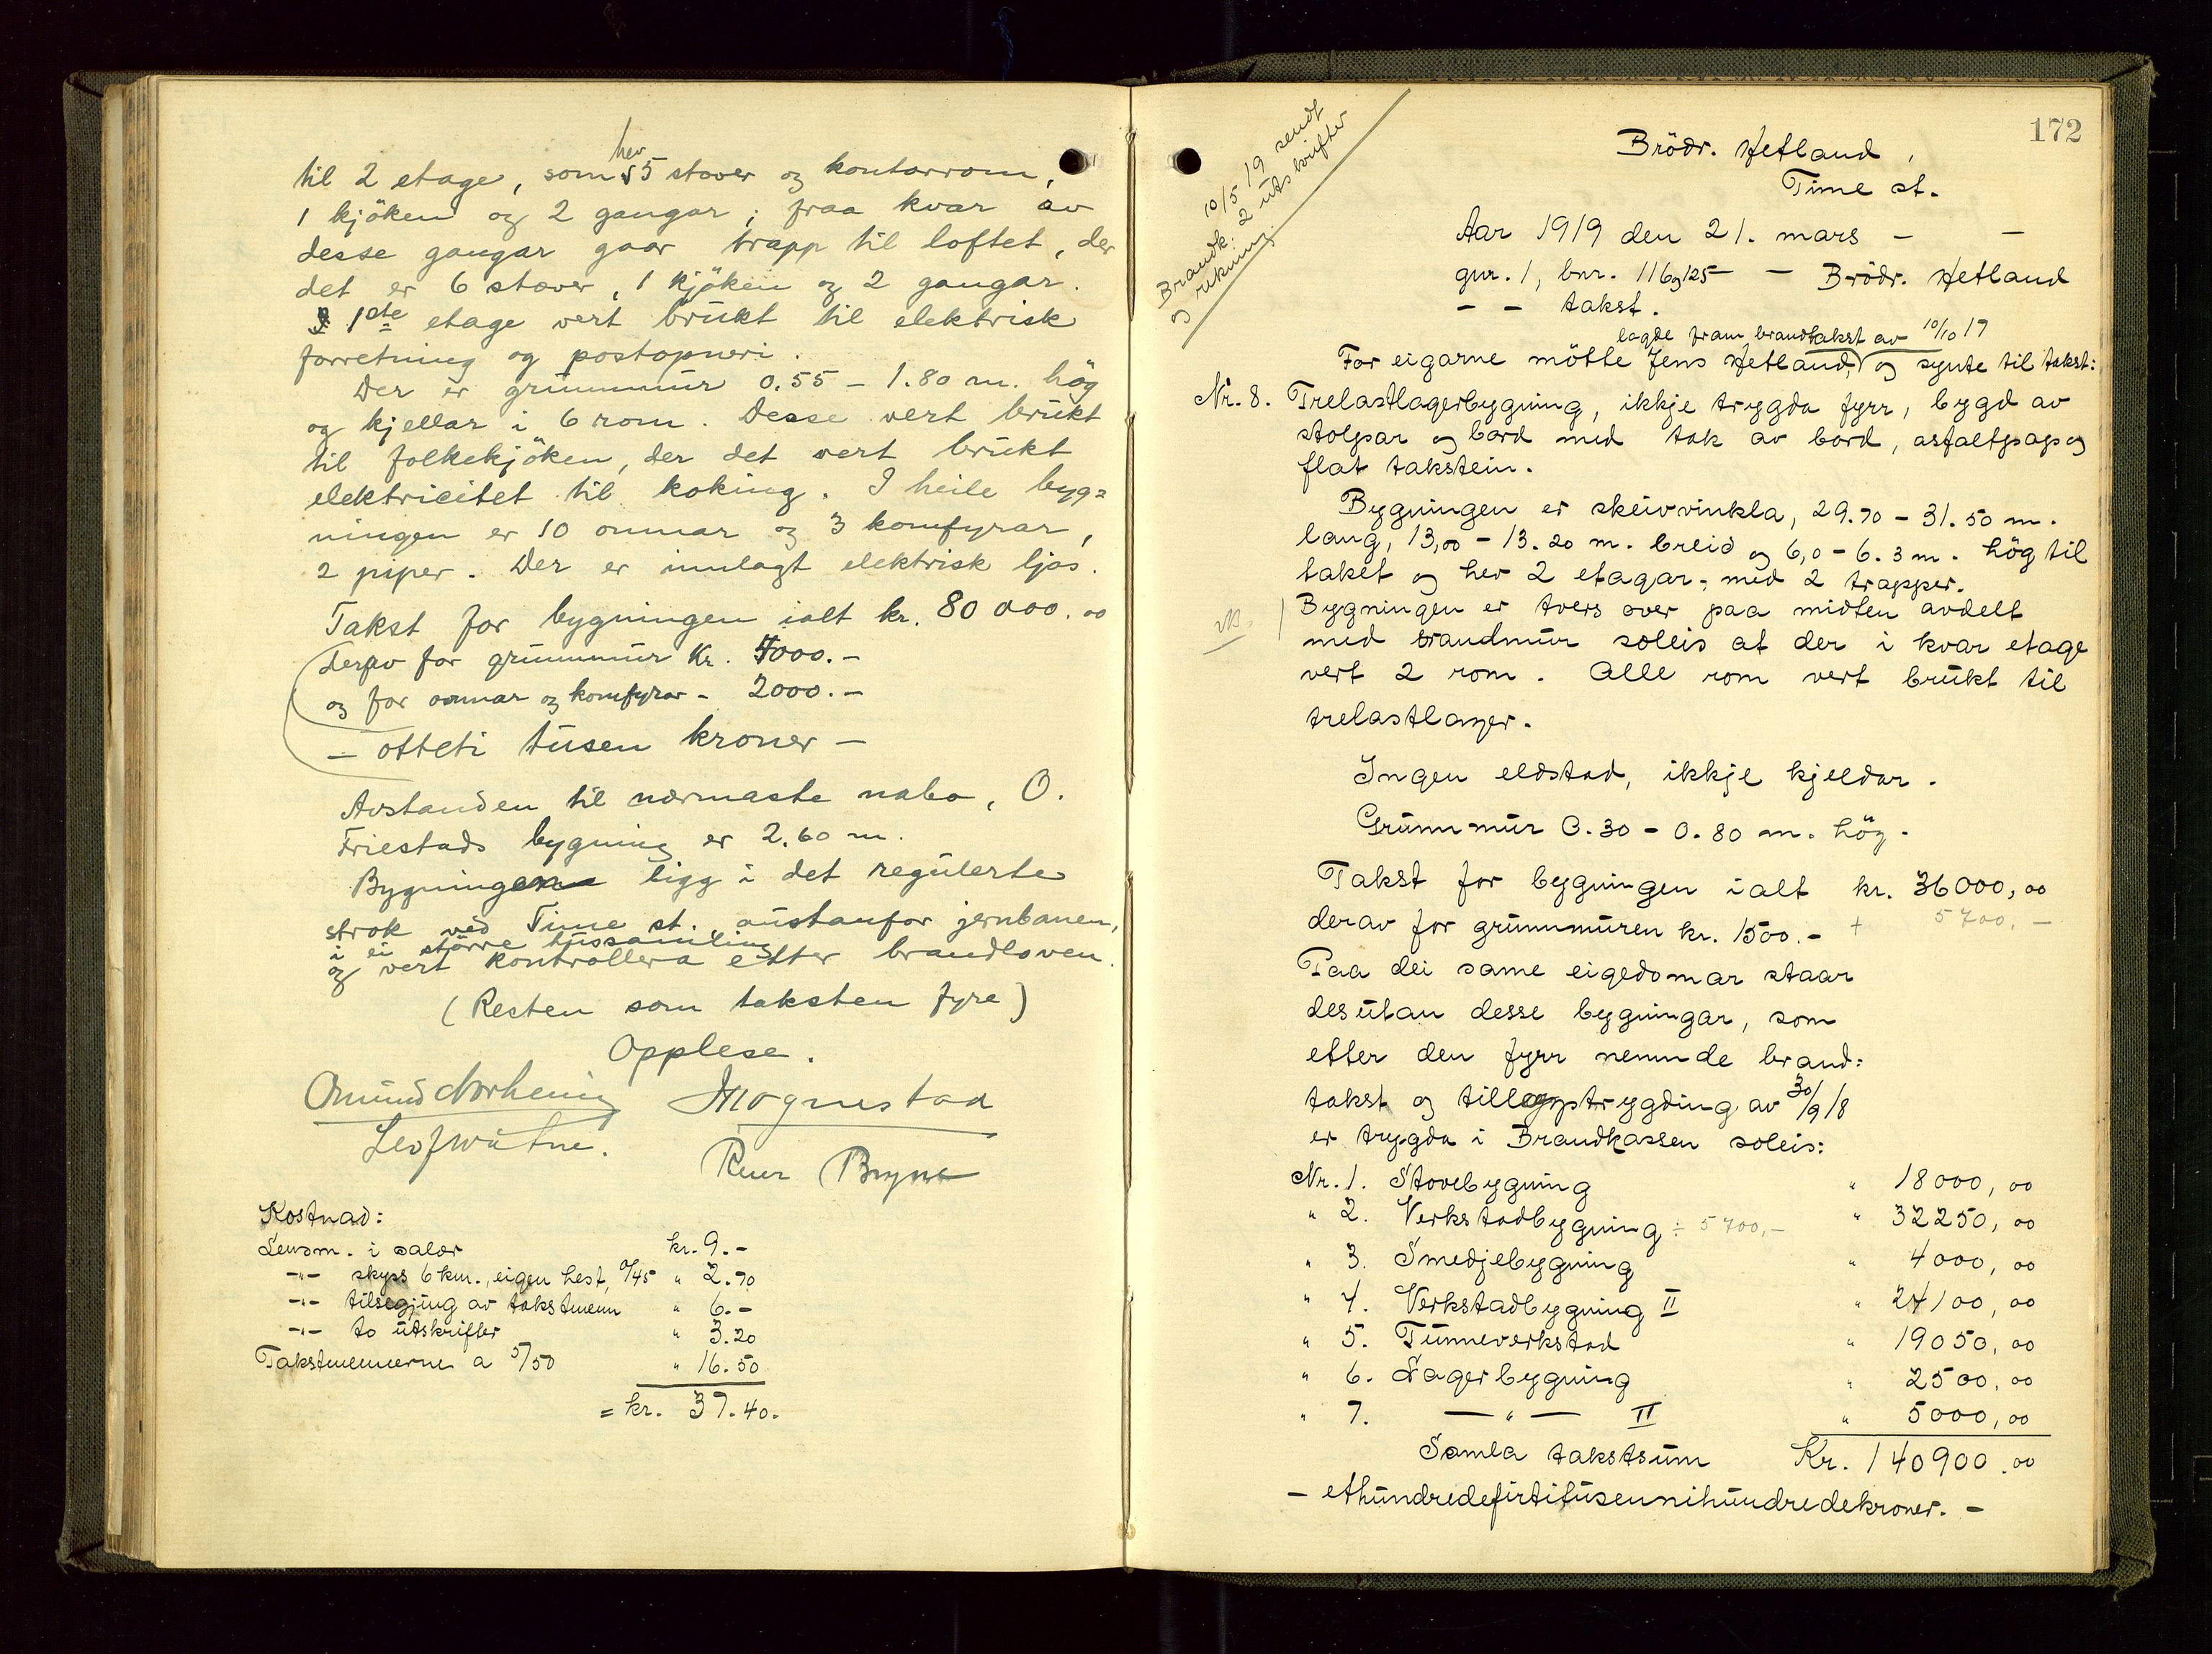 til 2 etage, som hev 5 stover og kontorrom,
1 kjöken og 2 gangar; fraa kvar av
desse gangar gaar trapp til loftet, der
det er 6 stover, 1 kjöken og 2 gangar.
I 1ste etage vert brukt til elektrisk
forretning og postopneri.
Der er grunnmur 0.55 - 1.80 m. hög
og kjellar i 6 rom. Desse vert brukt
til folkekjöken, der det vert brukt
elektricitet til koking. I heile byg=
ningen er 10 omnar og 3 komfyrar,
2 piper. Der er innlagt elektrisk ljos.
Takst for bygningen ialt kr. 80 000.00
derav for grunnmur Kr. 4000.-
og for omnar og komfyrar - 2000.-
- otteti tusen kroner -
Avstanden til nærmaste nabo, O.
Friestads bygning er 2.60 m.
Bygningen ligg i det regulerte
strok ved Time st., austanfor jernbanen,
i ei större hussamling
og vert kontrollera etter brandloven.
(Resten som taksten fyre)
Opplese.
Omund Norheim Mognestad
Leofwatne.
Peer Bryne
Kostnad:
Lensm. i salær kr. 9.-
-"- skyss 6 km., eigen hest, 0/45 " 2.70
-"- tilsegjing av takstmenn " 6.-
-"- to utskrifter " 3.20
Takstmennerne a 5/50 " 16.50
= kr. 37.40.
172
Brandk: 10/5 19 sendt
2 utskrifter
og rekning.
Brödr. Hetland,
Time st.
Aar 1919 den 21. mars - -
gnr. 1, bnr. 116 og 125 - - Brödr. Hetland
- - takst.
lagde fram brandtakst av 10/10 17
For eigarne mötte Jens Hetland, og synte til takst:
Nr. 8. Trelastlagerbygning, ikkje trygda fyrr, bygd av
stolpar og bord med tak av bord, asfaltpap og
flat takstein.
Bygningen er skeivvinkla, 29.70 - 31.50 m.
lang, 13,00 - 13.20 m. breid og 6,0 - 6.3 m. hög til
taket og hev 2 etagar, med 2 trapper.
NB. Bygningen er tvers over paa midten avdelt
med brandmur soleis at der i kvar etage
vert 2 rom. Alle rom vert brukt til
trelastlager.
Ingen eldstad, ikkje kjeldar.
Grunnmur 0.30 - 0.80 m. hög.
Takst for bygningen ialt kr. 36000,00
derav for grunnmuren kr. 1500.- + 5700,-
Paa dei same eigedomar staar
desutan desse bygningar, som
etter den fyrr nemnde brand:
takst og tilleggstrygding av 30/9 18
er trygda i Brandkassen soleis:
Nr. 1. Stovebygning " 18000,00
" 2. Verkstadbygning ÷ 5700,- " 32250,00
" 3. Smedjebygning " 4000,00
" 4. Verkstadbygning II " 24100,00
" 5. Tunneverkstad " 19050,00
" 6. Lagerbygning " 2500,00
" 7. - " - II " 5000,00
Samla takstsum Kr. 140900.00
- ethundredefirtitusennihundredekroner. -